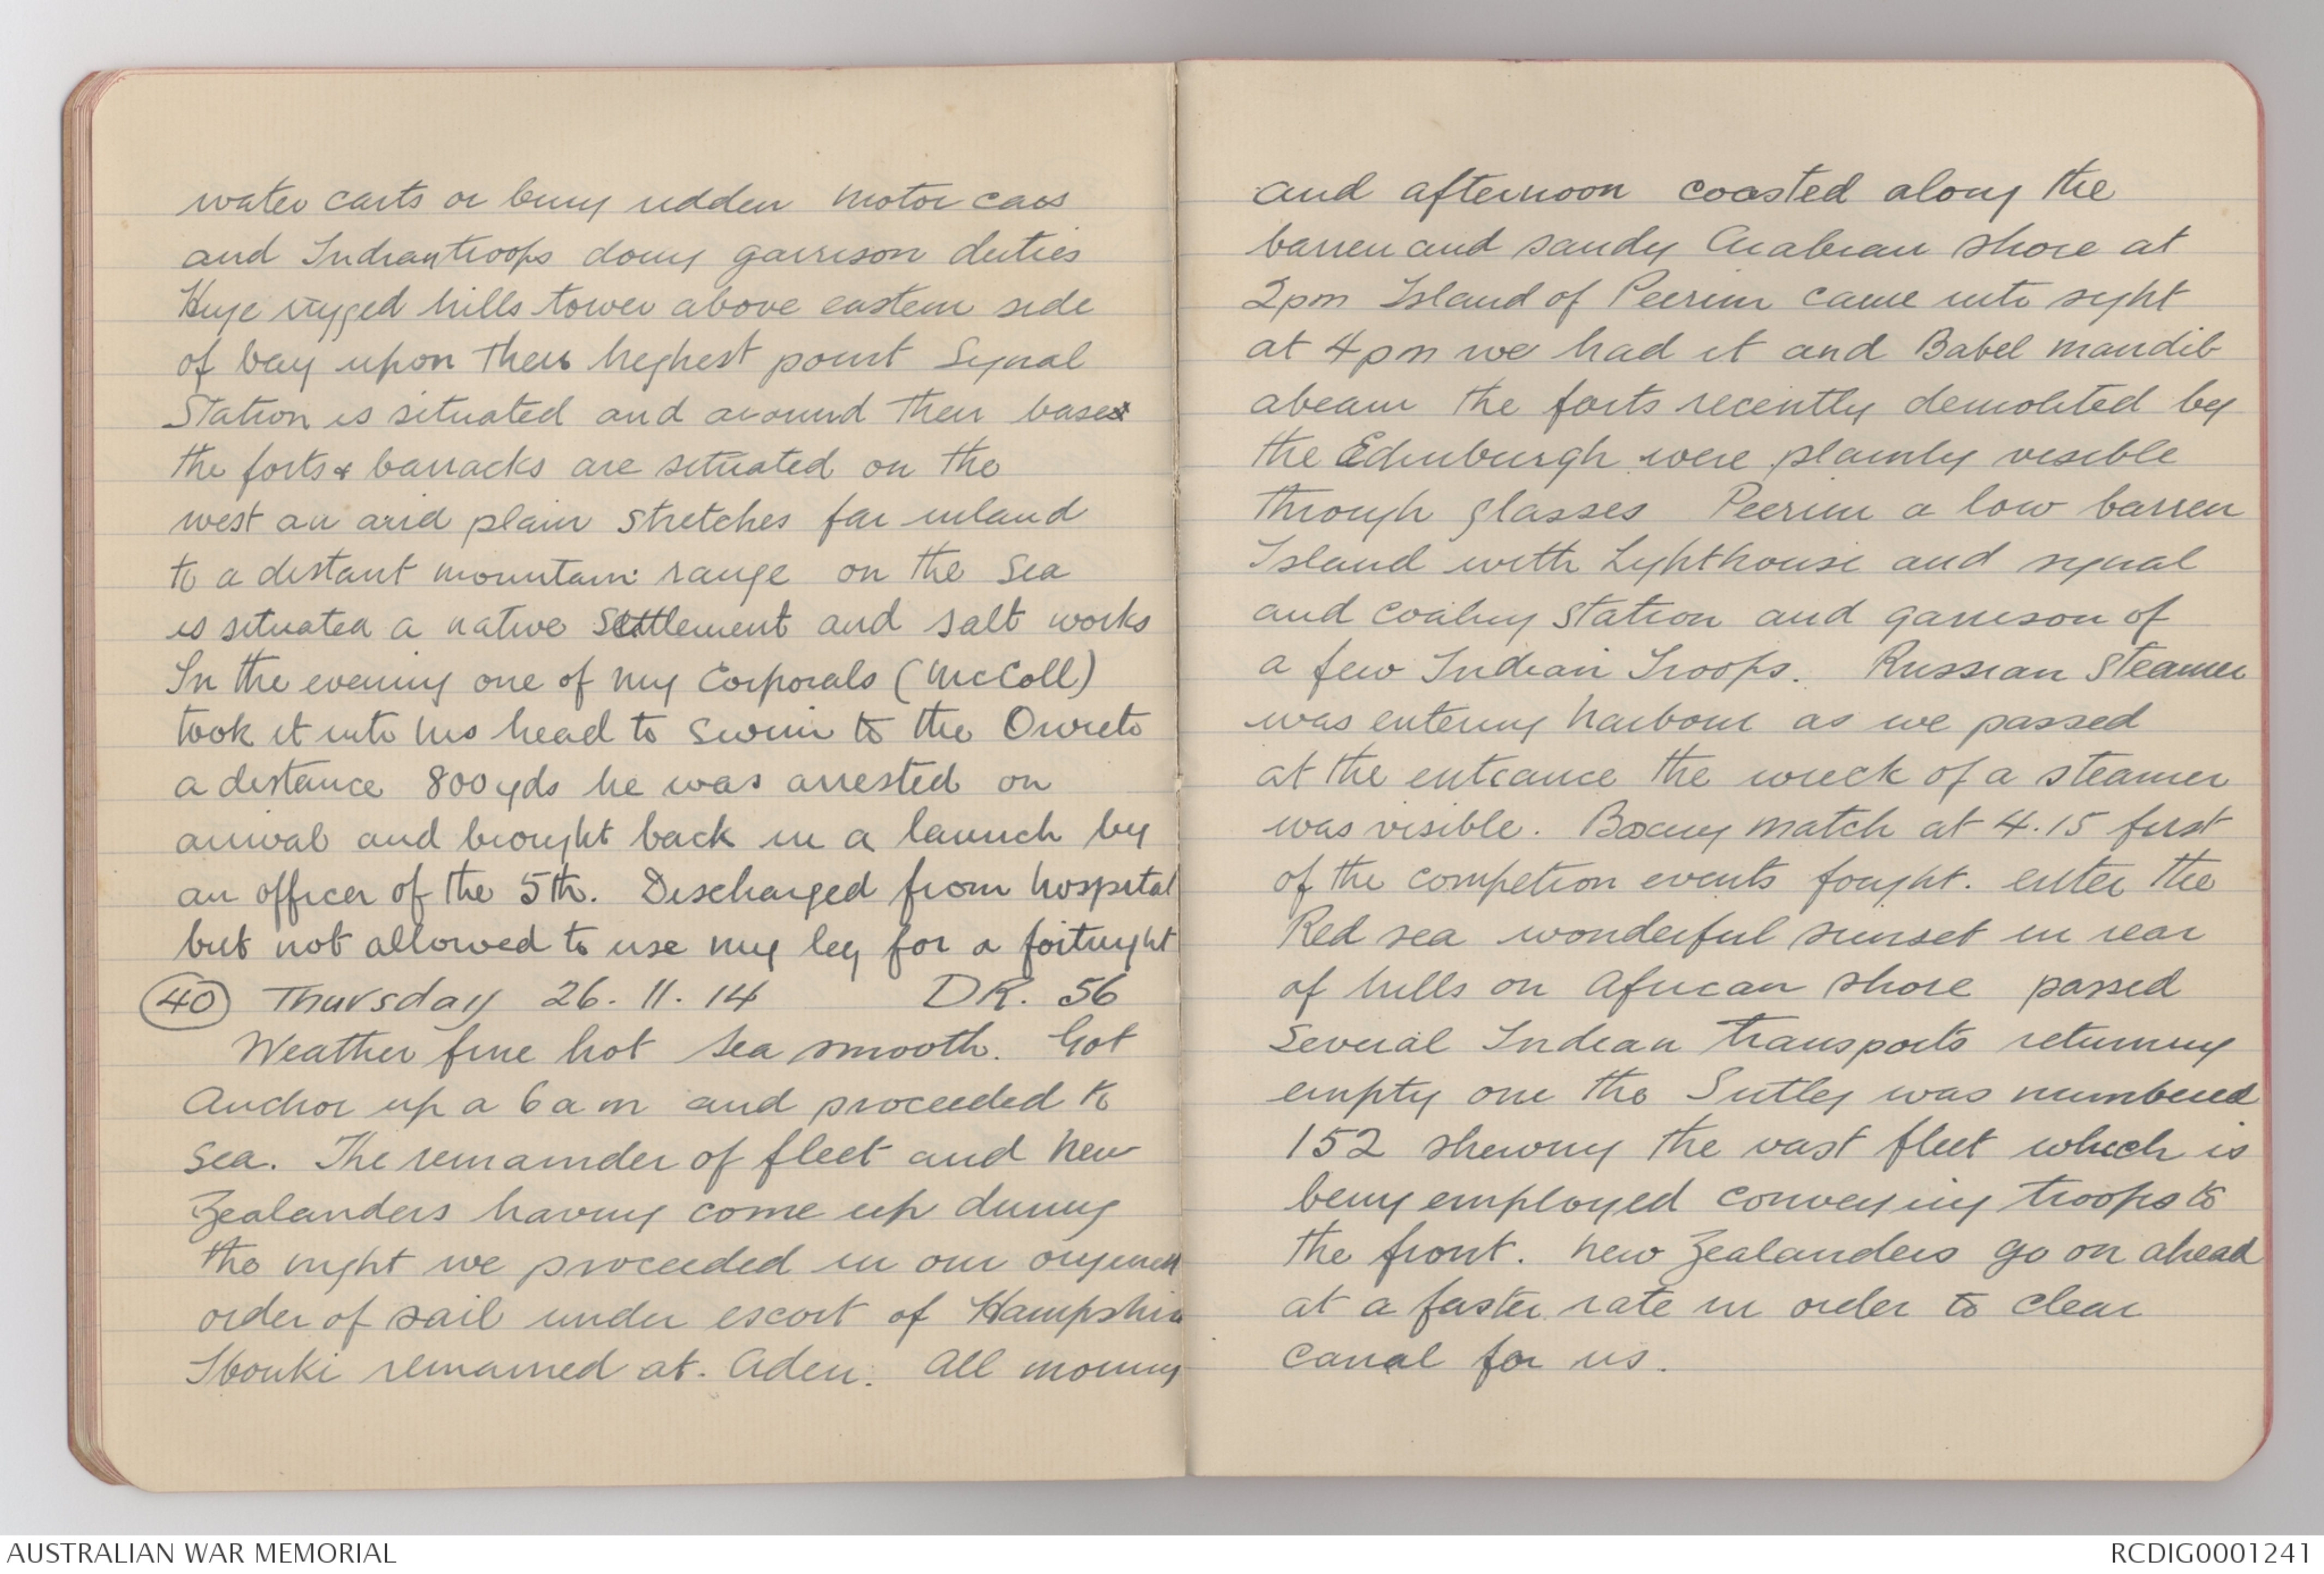 water carts or being ridden motor cars
and Indian troops doing garrison duties
Huge rugged hills tower above eastern side
of bay upon their highest point Signal
Station is situated and around their bases
the forts & barracks are situated on the
west an arid plain stretches far inland
to a distant mountain range on the Sea
is situated a native Settlement and salt works
In the evening one of my Corporals (McColl)
took it into his head to swim to the Orvieto
a distance 800yds he was arrested on
arrival and brought back in a launch by
an officer of the 5th. Discharged from hospital
but not allowed to use my leg for a fortnight
40 Thursday 26.11.14 DR. 56
Weather fine hot sea smooth. Got
Anchor up a 6am and proceeded to
sea. The remainder of fleet and New
Zealanders having come up during
the night we proceeded in our original
order of sail under escort of Hampshire
Ibouki remained at. Aden. All morning
and afternoon coasted along the
barren and sandy Arabian shore at
2pm Island of Peerim came into sight
at 4pm we had it and Babel mandib
abeam the forts recently demolited by
the Edinburgh were plainly visible
through glasses Peerim a low barren
Island with Lighthouse and signal
and coaling station and garrison of
a few Indian Troops. Russian Steamer
was entering harbour as we passed
at the entrance the wreck of a steamer
was visible. Boxing match at 4.15 first
of the competion events fought. enter the
Red sea wonderful sunset in rear
of hills on African shore passed
several Indian transports returning
empty one the Sutley was numbered
152 shewing the vast fleet which is
being employed conveying troops to
the front. New Zealanders go on ahead
at a faster rate in order to clear
canal for us.
AUSTRALIAN WAR MEMORIAL
RCDIG0001241